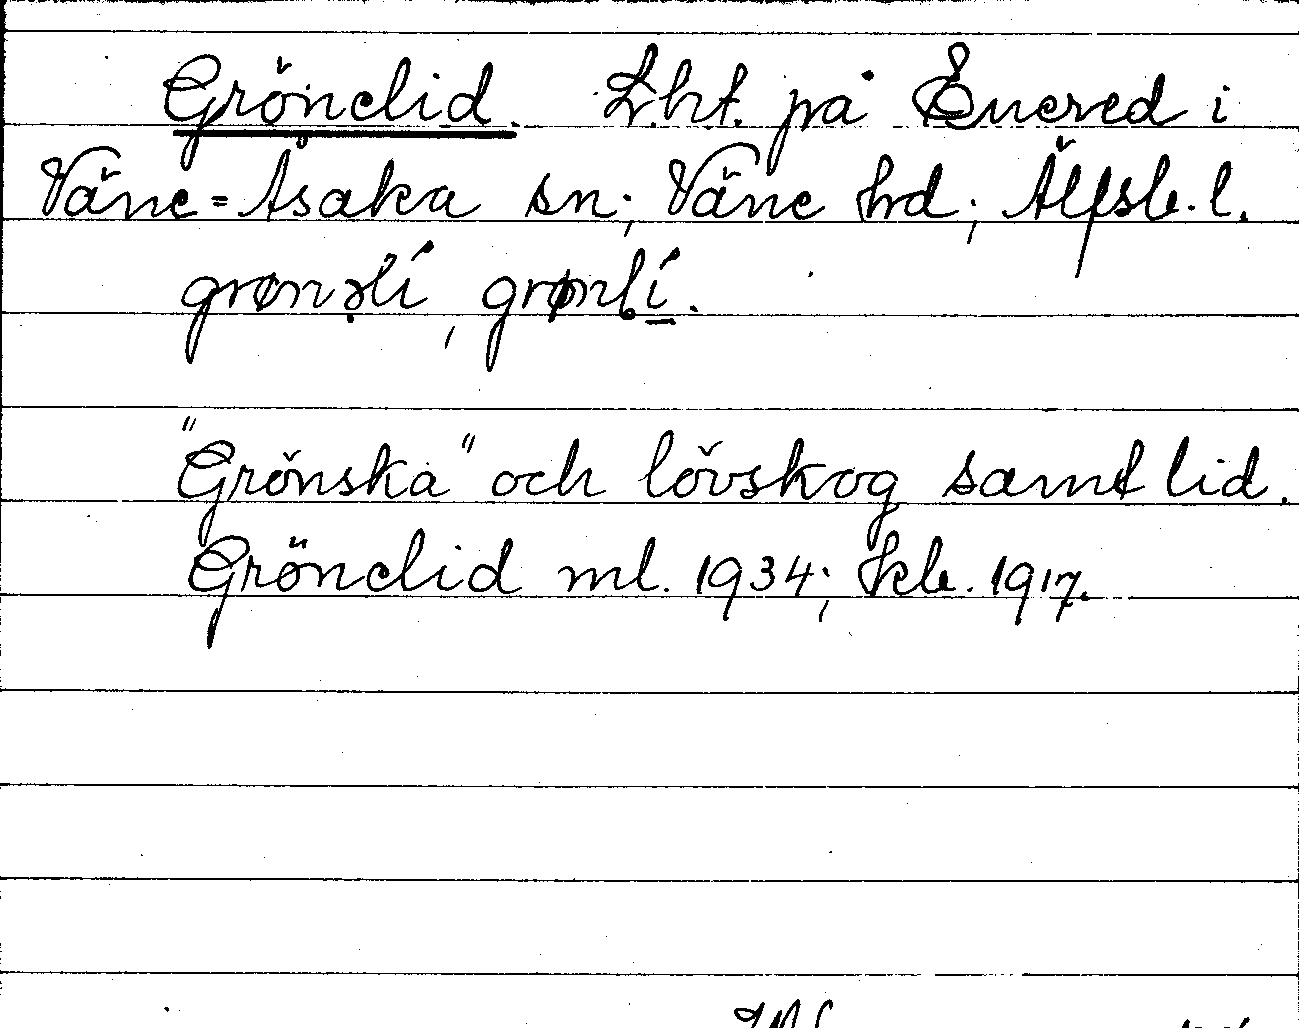 Grönelid. Lht. på Enered i
Väne=Åsaka sn; Väne hd; Älfsb. l.
grønəlí, grønlí.
"Grönska" och lövskog samt lid.
Grönelid ml. 1934; kb. 1917.